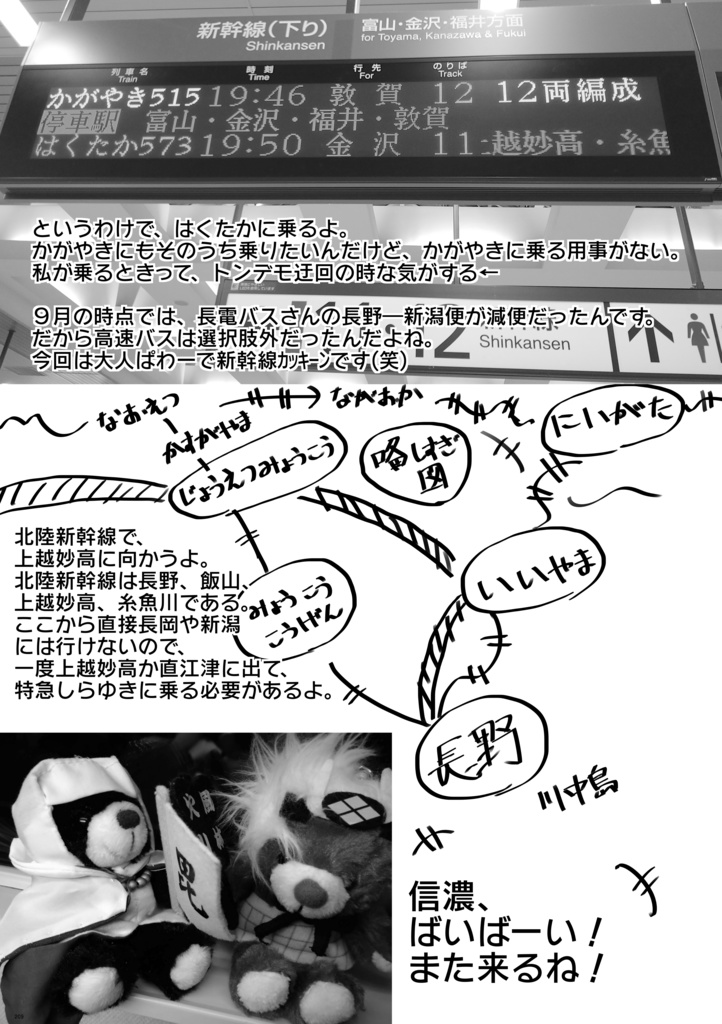 新幹線(下り)
Shinkansen
富山・金沢・福井方面
for Toyama, Kanazawa & Fukui
列車名 時刻 行先 のりば
Train Time For Track
かがやき515 19:46 敦賀 12 12両編成
停車駅 富山・金沢・福井・敦賀
はくたか573 19:50 金沢 11 上越妙高・糸魚
というわけで、はくたかに乗るよ。
かがやきにもそのうち乗りたいんだけど、かがやきに乗る用事がない。
私が乗るときって、トンデモ迂回の時な気がする←
9月の時点では、長電バスさんの長野―新潟便が減便だったんです。
だから高速バスは選択肢外だったんだよね。
今回は大人ぱわーで新幹線ｶｯｷｰﾝです(笑)
12
新幹線
Shinkansen
なおえつ
かすがやま
ながおか
にいがた
じょうえつみょうこう
略しすぎ
図
北陸新幹線で、
上越妙高に向かうよ。
北陸新幹線は長野、飯山、
上越妙高、糸魚川である。
ここから直接長岡や新潟
には行けないので、
一度上越妙高か直江津に出て、
特急しらゆきに乗る必要があるよ。
みょうこう
こうげん
いいやま
長野
川中島
毘
信濃、
ばいばーい！
また来るね！